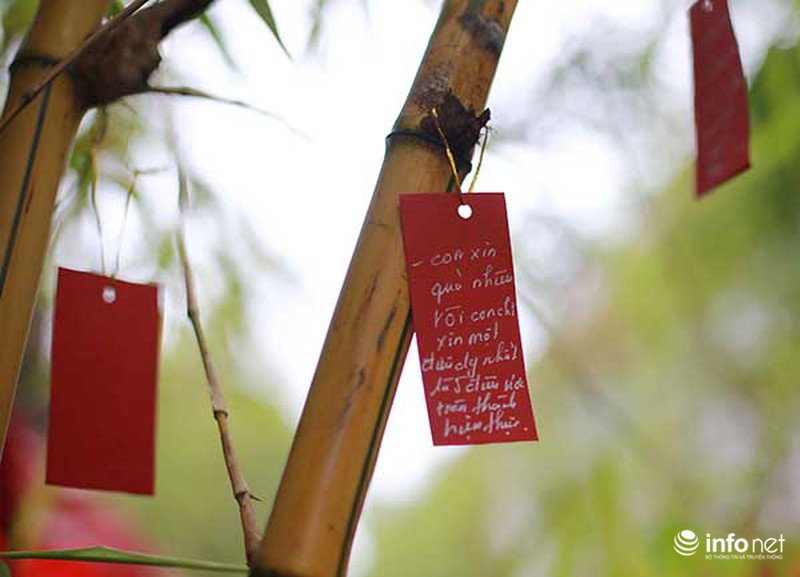 - con xin
quá nhiều
rồi con chỉ
xin một
điều duy nhất
là 5 điều ước
trên thành
hiện thực.
infonet
BỘ THÔNG TIN VÀ TRUYỀN THÔNG